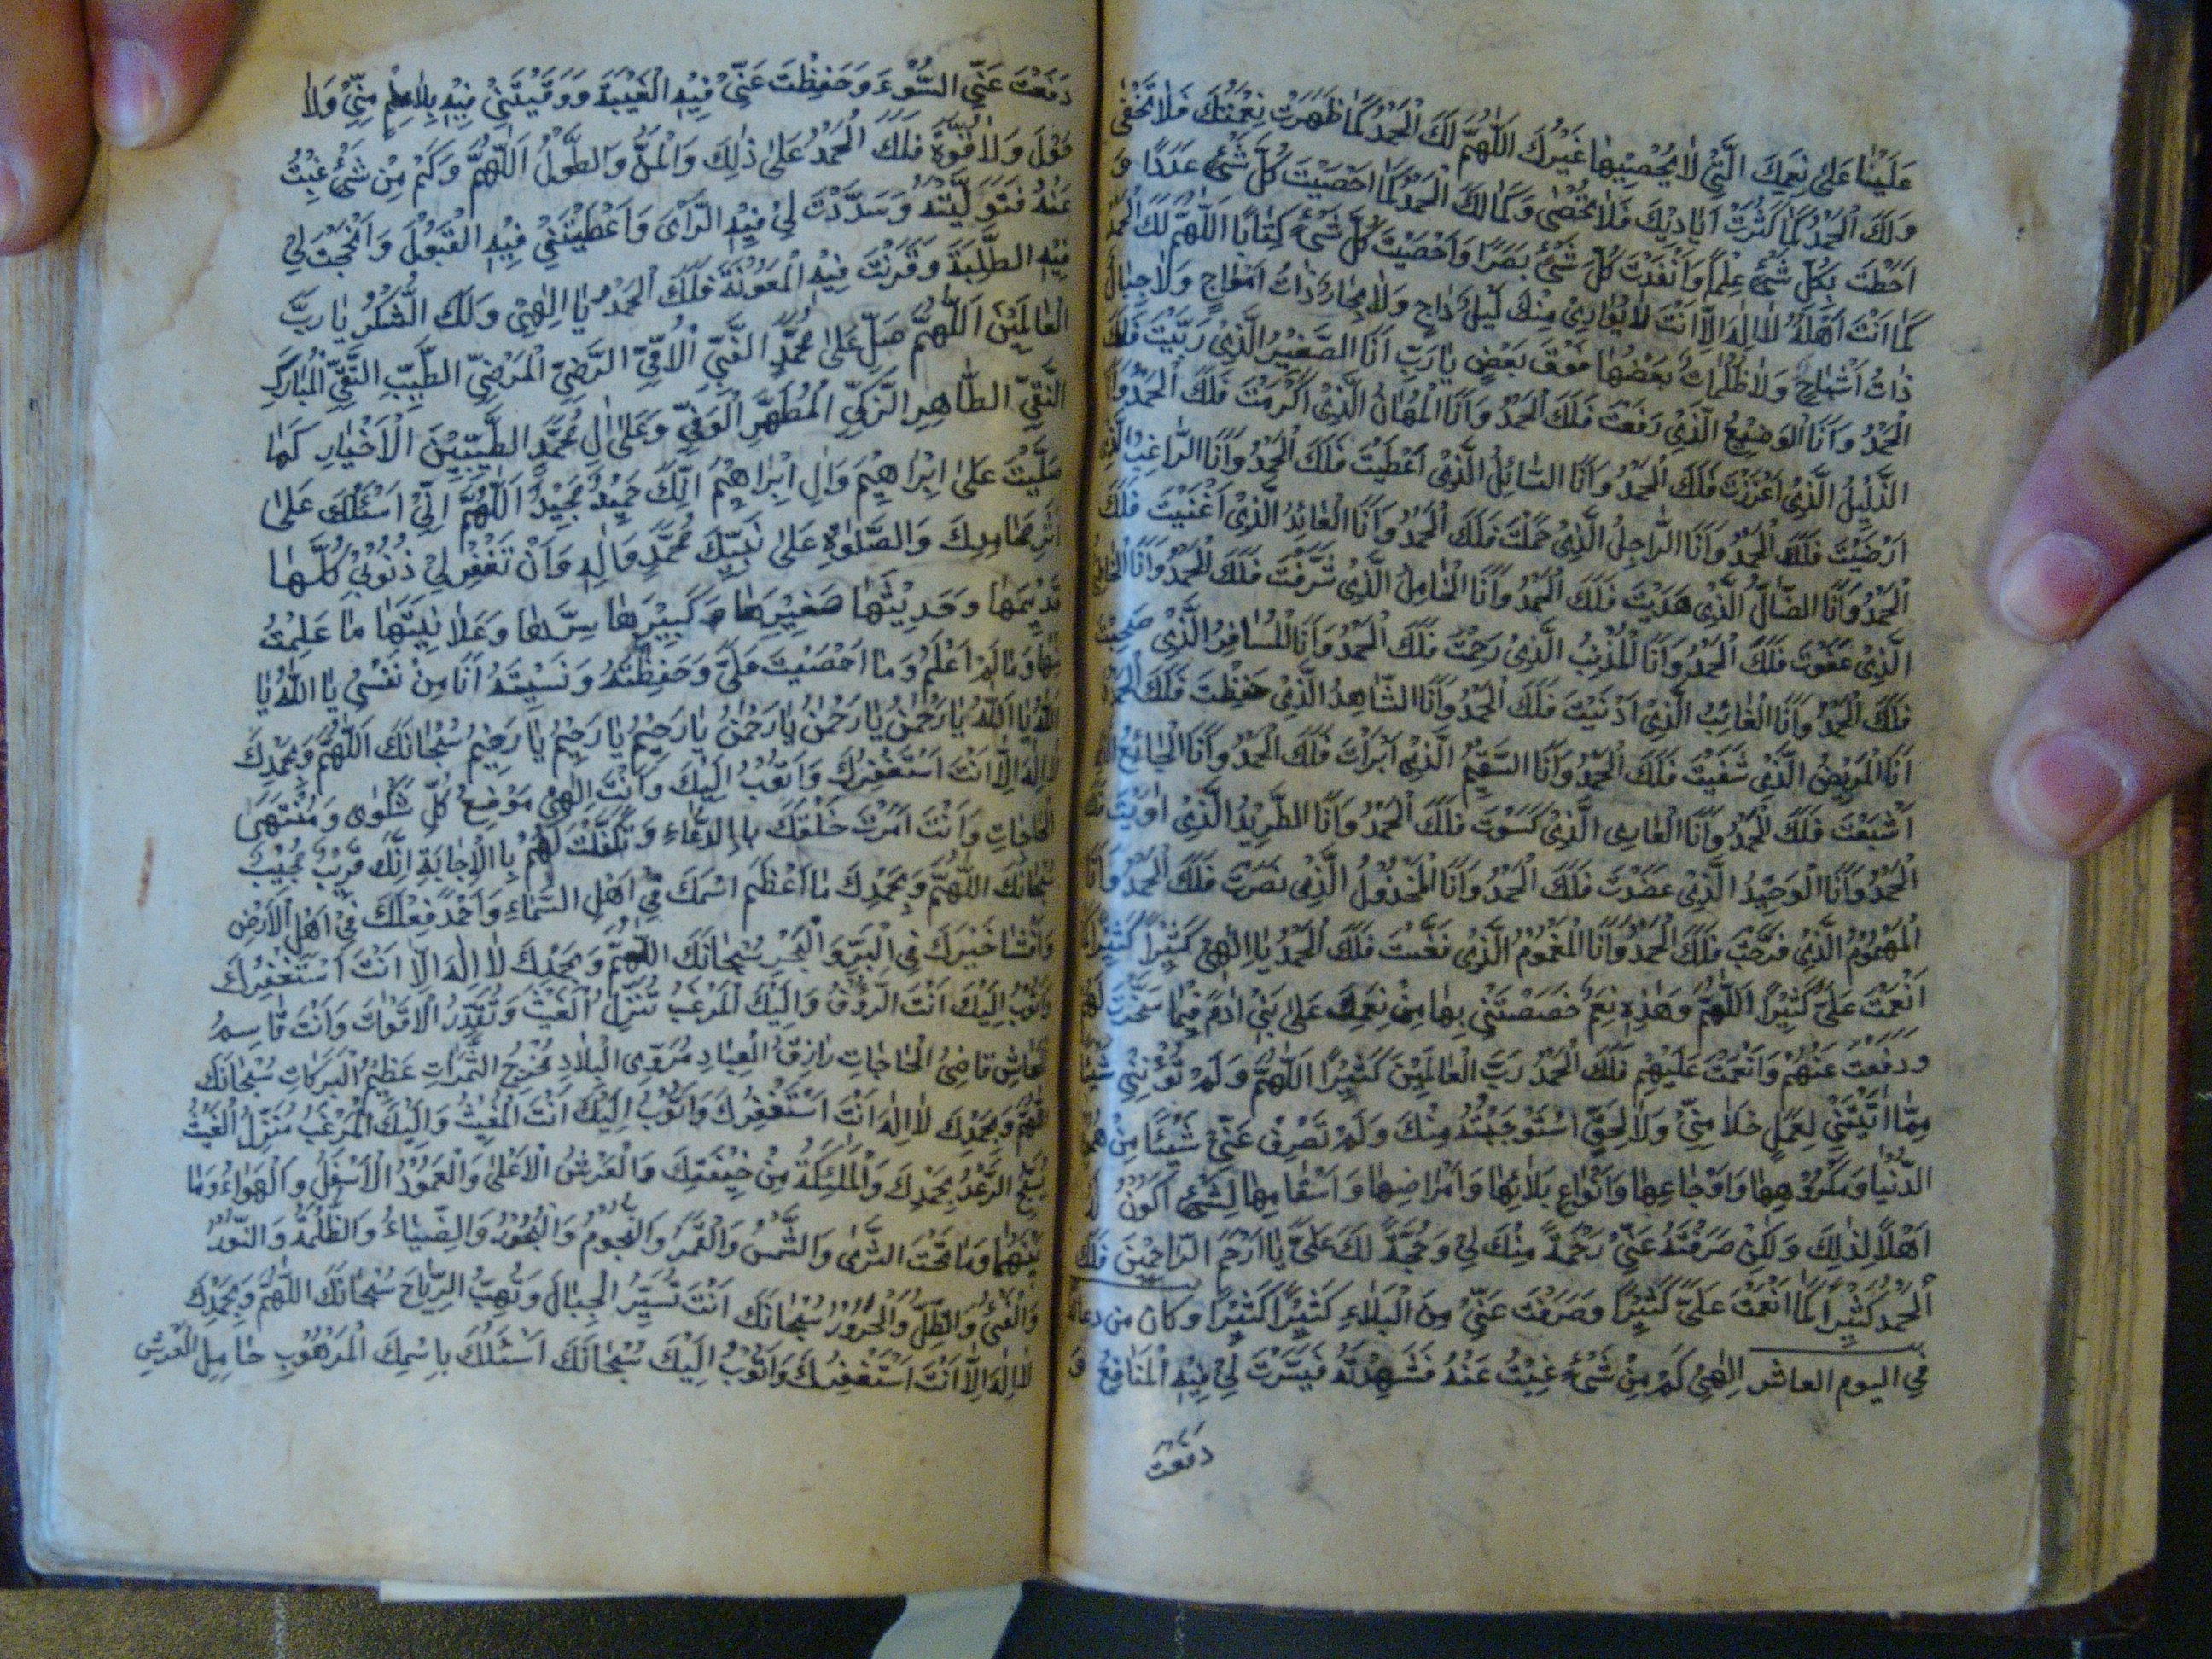 عَلَيْنَا عَلَىٰ نِعَمِكَ الَّتِي لَا يُحْصِيهَا غَيْرُكَ اللَّهُمَّ لَكَ الْحَمْدُ كَمَا ظَهَرَتْ نِعْمَتُكَ فَلَا تَخْفَىٰ
وَلَكَ الْحَمْدُ كَمَا كَثُرَتْ أَيَادِيكَ فَلَا تُحْصَىٰ وَكَمَا لَكَ الْحَمْدُ كَمَا أَحْصَيْتَ كُلَّ شَيْءٍ عَدَدًا وَ
أَحَطْتَ بِكُلِّ شَيْءٍ عِلْمًا وَأَنْفَدْتَ كُلَّ شَيْءٍ بَصَرًا وَأَحْصَيْتَ كُلَّ شَيْءٍ كِتَابًا اللَّهُمَّ لَكَ الْحَمْدُ
كَمَا أَنْتَ أَهْلُهُ لَا إِلَٰهَ إِلَّا أَنْتَ لَا يُوَارِي مِنْكَ لَيْلٌ دَاجٍ وَلَا بِحَارٌ ذَاتُ أَمْوَاجٍ وَلَا جِبَالٌ
ذَاتُ أَثْبَاجٍ وَلَا ظُلُمَاتٌ بَعْضُهَا فَوْقَ بَعْضٍ يَا رَبِّ أَنَا الصَّغِيرُ الَّذِي رَبَّيْتَ فَلَكَ
الْحَمْدُ وَأَنَا الْوَضِيعُ الَّذِي رَفَعْتَ فَلَكَ الْحَمْدُ وَأَنَا الْمُهَانُ الَّذِي أَكْرَمْتَ فَلَكَ الْحَمْدُ وَأَنَا
الذَّلِيلُ الَّذِي أَعْزَزْتَ فَلَكَ الْحَمْدُ وَأَنَا السَّائِلُ الَّذِي أَعْطَيْتَ فَلَكَ الْحَمْدُ وَأَنَا الرَّاغِبُ الَّذِي
أَرْضَيْتَ فَلَكَ الْحَمْدُ وَأَنَا الرَّاجِلُ الَّذِي حَمَلْتَ فَلَكَ الْحَمْدُ وَأَنَا الْعَائِدُ الَّذِي أَغْنَيْتَ فَلَكَ
الْحَمْدُ وَأَنَا الضَّالُّ الَّذِي هَدَيْتَ فَلَكَ الْحَمْدُ وَأَنَا الْخَامِلُ الَّذِي شَرَّفْتَ فَلَكَ الْحَمْدُ وَأَنَا الْخَاطِئُ
الَّذِي عَفَوْتَ فَلَكَ الْحَمْدُ وَأَنَا الْمُذْنِبُ الَّذِي رَحِمْتَ فَلَكَ الْحَمْدُ وَأَنَا الْمُسَافِرُ الَّذِي صَحِبْتَ
فَلَكَ الْحَمْدُ وَأَنَا الْغَائِبُ الَّذِي أَدْنَيْتَ فَلَكَ الْحَمْدُ وَأَنَا الشَّاهِدُ الَّذِي حَفِظْتَ فَلَكَ الْحَمْدُ
أَنَا الْمَرِيضُ الَّذِي شَفَيْتَ فَلَكَ الْحَمْدُ وَأَنَا السَّقِيمُ الَّذِي أَبْرَأْتَ فَلَكَ الْحَمْدُ وَأَنَا الْجَائِعُ
أَشْبَعْتَ فَلَكَ الْحَمْدُ وَأَنَا الْعَارِي الَّذِي كَسَوْتَ فَلَكَ الْحَمْدُ وَأَنَا الطَّرِيدُ الَّذِي آوَيْتَ
الْحَمْدُ وَأَنَا الْوَحِيدُ الَّذِي عَضَدْتَ فَلَكَ الْحَمْدُ وَأَنَا الْمَخْذُولُ الَّذِي نَصَرْتَ فَلَكَ الْحَمْدُ وَأَنَا
الْمَهْمُومُ الَّذِي فَرَّجْتَ فَلَكَ الْحَمْدُ وَأَنَا الْمَغْمُومُ الَّذِي نَفَّسْتَ فَلَكَ الْحَمْدُ يَا إِلَٰهِي كَثِيرًا كَثِيرًا
أَنْعَمْتَ عَلَيَّ كَثِيرًا اللَّهُمَّ وَهَٰذِهِ نِعَمٌ خَصَصْتَنِي بِهَا مِنْ نِعَمِكَ عَلَىٰ بَنِي آدَمَ فِيمَا سَخَّرْتَ لَهُمْ
وَدَفَعْتَ عَنْهُمْ وَأَنْعَمْتَ عَلَيْهِمْ فَلَكَ الْحَمْدُ رَبَّ الْعَالَمِينَ كَثِيرًا اللَّهُمَّ وَلَمْ تُؤْتِنِي شَيْئًا
مِمَّا آتَيْتَنِي لِعَمَلٍ خَلَا مِنِّي وَلَا لِحَقٍّ اسْتَوْجَبْتُهُ مِنْكَ وَلَمْ تَصْرِفْ عَنِّي شَيْئًا مِنْ
الدُّنْيَا وَمَكْرُوهِهَا وَأَوْجَاعِهَا وَأَنْوَاعِ بَلَائِهَا وَأَمْرَاضِهَا وَأَسْقَامِهَا لِشَيْءٍ أَكُونُ لَهُ
أَهْلًا لِذَٰلِكَ وَلَٰكِنْ صَرَفْتَهُ عَنِّي رَحْمَةً مِنْكَ لِي وَحُجَّةً لَكَ عَلَيَّ يَا أَرْحَمَ الرَّاحِمِينَ فَلَكَ
الْحَمْدُ كَثِيرًا كَمَا أَنْعَمْتَ عَلَيَّ كَثِيرًا وَصَرَفْتَ عَنِّي مِنَ الْبَلَاءِ كَثِيرًا كَثِيرًا كَثِيرًا وكان من دعائه
في اليوم العاشر إِلَٰهِي كَمْ مِنْ شَيْءٍ غِبْتُ عَنْهُ فَشَهِدْتَهُ فَيَسَّرْتَ لِي فِيهِ الْمَنَافِعَ وَ
دَفَعْتَ
دَفَعْتَ عَنِّي السُّوءَ وَحَفِظْتَ عَنِّي فِيهِ الْغَيْبَةَ وَوَقَيْتَنِي فِيهِ بِلَا عِلْمٍ مِنِّي وَلَا
حَوْلَ وَلَا قُوَّةٍ فَلَكَ الْحَمْدُ عَلَىٰ ذَٰلِكَ وَالْمَنُّ وَالطَّوْلُ اللَّهُمَّ وَكَمْ مِنْ شَيْءٍ غِبْتُ
عَنْهُ فَتَوَلَّيْتَهُ وَسَدَّدْتَ لِي فِيهِ الرَّأْيَ وَأَعْطَيْتَنِي فِيهِ الْقَبُولَ وَأَنْجَحْتَ لِي
فِيهِ الطَّلِبَةَ وَقَرَنْتَ فِيهِ الْمَعُونَةَ فَلَكَ الْحَمْدُ يَا إِلَٰهِي وَلَكَ الشُّكْرُ يَا رَبَّ
الْعَالَمِينَ اللَّهُمَّ صَلِّ عَلَىٰ مُحَمَّدٍ النَّبِيِّ الْأُمِّيِّ الرَّضِيِّ الْمَرْضِيِّ الطَّيِّبِ التَّقِيِّ الْمُبَارَكِ
النَّقِيِّ الطَّاهِرِ الزَّكِيِّ الْمُطَهَّرِ الْوَفِيِّ وَعَلَىٰ آلِ مُحَمَّدٍ الطَّيِّبِينَ الْأَخْيَارِ كَمَا
صَلَّيْتَ عَلَىٰ إِبْرَاهِيمَ وَآلِ إِبْرَاهِيمَ إِنَّكَ حَمِيدٌ مَجِيدٌ اللَّهُمَّ إِنِّي أَسْئَلُكَ عَلَىٰ
أَثَرِ مَحَامِدِكَ وَالصَّلَوٰةِ عَلَىٰ نَبِيِّكَ مُحَمَّدٍ وَآلِهِ وَأَنْ تَغْفِرَ لِي ذُنُوبِي كُلَّهَا
قَدِيمَهَا وَحَدِيثَهَا صَغِيرَهَا وَكَبِيرَهَا سِرَّهَا وَعَلَانِيَتَهَا مَا عَلِمْتُ
مِنْهَا وَمَا لَمْ أَعْلَمْ وَمَا أَحْصَيْتَ عَلَيَّ وَحَفِظْتَهُ وَنَسِيتُهُ أَنَا مِنْ نَفْسِي يَا اللَّهُ يَا
اللَّهُ يَا اللَّهُ يَا رَحْمٰنُ يَا رَحْمٰنُ يَا رَحْمٰنُ يَا رَحِيمُ يَا رَحِيمُ يَا رَحِيمُ سُبْحَانَكَ اللَّهُمَّ وَبِحَمْدِكَ
لَا إِلَٰهَ إِلَّا أَنْتَ أَسْتَغْفِرُكَ وَأَتُوبُ إِلَيْكَ وَأَنْتَ إِلَٰهِي مَوْضِعُ كُلِّ شَكْوَىٰ وَمُنْتَهَىٰ
الْحَاجَاتِ وَأَنْتَ أَمَرْتَ خَلْقَكَ بِالدُّعَاءِ وَتَكَفَّلْتَ لَهُمْ بِالْإِجَابَةِ إِنَّكَ قَرِيبٌ مُجِيبٌ
سُبْحَانَكَ اللَّهُمَّ وَبِحَمْدِكَ مَا أَعْظَمَ اسْمَكَ فِي أَهْلِ السَّمَاءِ وَأَحْمَدَ فِعْلَكَ فِي أَهْلِ الْأَرْضِ
وَأَفْشَا خَيْرَكَ فِي الْبَرِّ وَالْبَحْرِ سُبْحَانَكَ اللَّهُمَّ وَبِحَمْدِكَ لَا إِلَٰهَ إِلَّا أَنْتَ أَسْتَغْفِرُكَ
وَأَتُوبُ إِلَيْكَ أَنْتَ الرَّؤُفُ وَإِلَيْكَ الْمَرْغَبُ تُنَزِّلُ الْغَيْثَ وَتُقَدِّرُ الْأَقْوَاتَ وَأَنْتَ قَاسِمُ
الْمَعَاشِ قَاضِي الْحَاجَاتِ رَازِقُ الْعِبَادِ مُرَوِّي الْبِلَادِ مُخْرِجُ الثَّمَرَاتِ عَظِيمُ الْبَرَكَاتِ سُبْحَانَكَ
اللَّهُمَّ وَبِحَمْدِكَ لَا إِلَٰهَ أَنْتَ أَسْتَغْفِرُكَ وَأَتُوبُ إِلَيْكَ أَنْتَ الْمُغِيثُ وَإِلَيْكَ الْمَرْغَبُ مُنَزِّلُ الْغَيْثِ
يُسَبِّحُ الرَّعْدُ بِحَمْدِكَ وَالْمَلٰئِكَةُ مِنْ خِيفَتِكَ وَالْعَرْشُ الْأَعْلَىٰ وَالْعَمُودُ الْأَسْفَلُ وَالْهَوَاءُ وَمَا
بَيْنَهُمَا وَمَا تَحْتَ الثَّرَىٰ وَالشَّمْسُ وَالْقَمَرُ وَالنُّجُومُ وَالْبُحُورُ وَالضِّيَاءُ وَالظُّلْمَةُ وَالنُّورُ
وَالْفَيْءُ وَالظِّلُّ وَالْحَرُورُ سُبْحَانَكَ أَنْتَ تُسَيِّرُ الْجِبَالَ وَتُهِبُّ الرِّيَاحَ سُبْحَانَكَ اللَّهُمَّ وَبِحَمْدِكَ
لَا إِلَٰهَ إِلَّا أَنْتَ أَسْتَغْفِرُكَ وَأَتُوبُ إِلَيْكَ سُبْحَانَكَ أَسْئَلُكَ بِاسْمِكَ الْمَرْهُوبِ حَامِلِ الْعَرْشِ